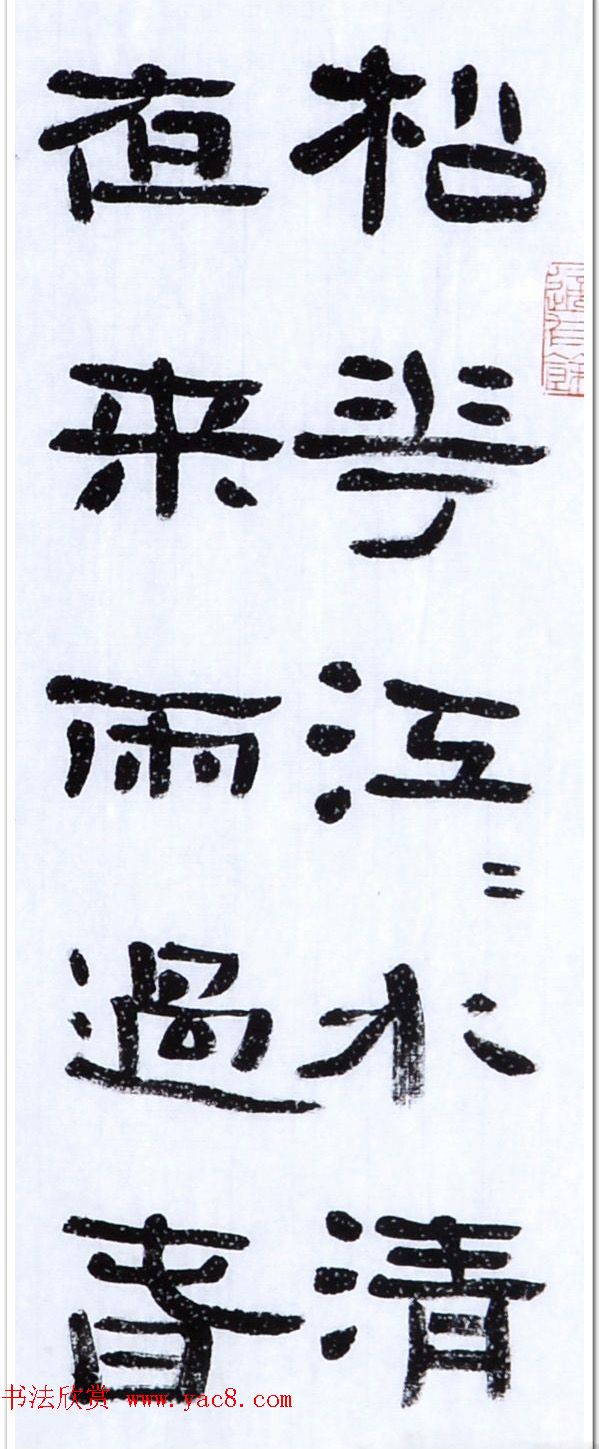 松華江〻水清
夜来雨過春
书法欣赏 www.yac8.com